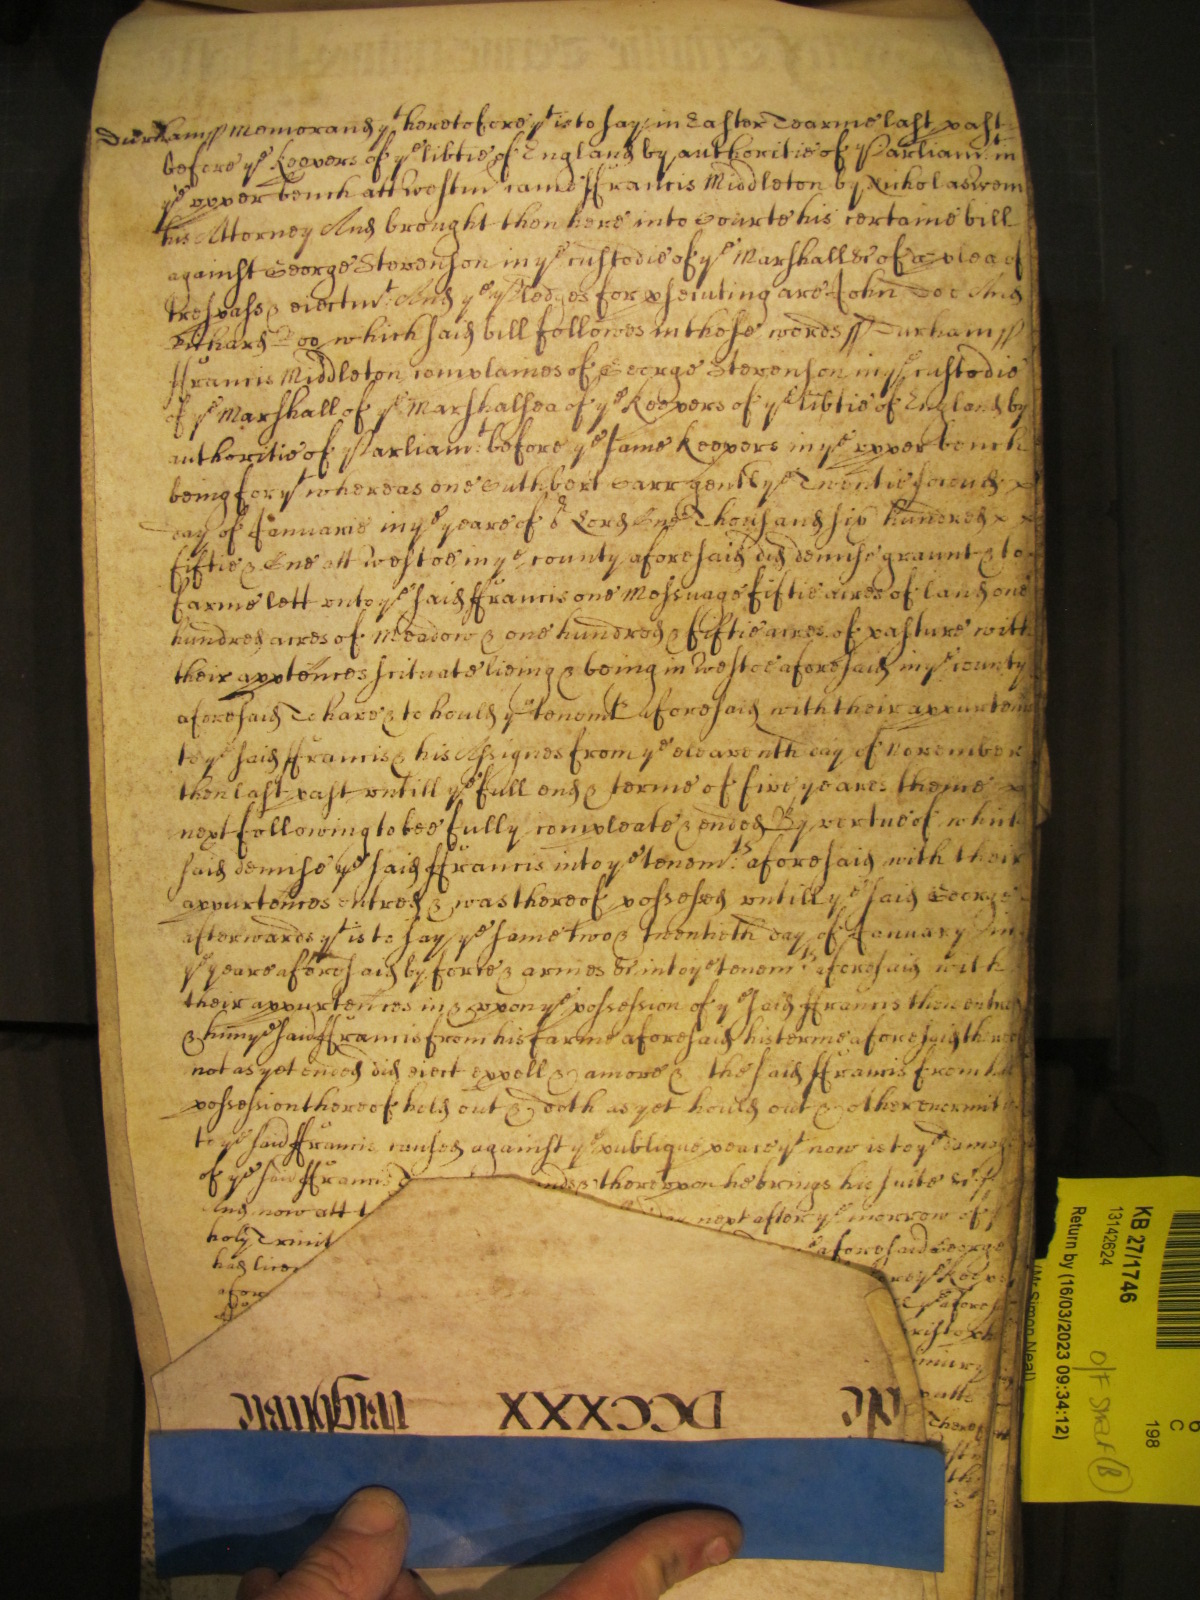 Durham ss Memorand yt heretofore yt is to say in Easter Tearme last past
before ye Keepers of ye libtie of England by authoritie of Parliamt in
ye upper bench att Westmr came ffrancis Middleton by Nicholas Wem
his Attorney And brought then here into Courte his certaine bill
against George Stevenson in ye custodie of ye Marshall &c of a plea of
trespass & eiectmt And ye pledges for psecuting are John Doe And
Richard Roo which said bill followes in these words ss Durham ss
ffrancis Middleton complaines of George Stevenson in ye custodie
of ye Marshall of ye Marshalsea of ye Keepers of ye libtie of England by
authoritie of Parliamt before ye same Keepers in ye upper bench
being for yt whereas one Cuthbert Carr gent ye Twentie second
day of Januarie in ye yeare of or Lord One Thousand six hundred
fiftie & One att Westoe in ye county aforesaid did demise graunt & to
farme lett unto ye said ffrancis one Messuage fiftie acres of land one
hundred acres of Meadow & one hundred & fiftie acres of pasture with
their apptences scituate lieing & being in Westoe aforesaid in ye county
aforesaid To have & to hould ye tenemts aforesaid with their appurten
to ye said ffrancis & his Assignes from ye eleaventh day of November
then last past untill ye full end & terme of five yeares thence
next following to bee fully compleate & ended By vertue of which
said demise ye said ffrancis into ye tenemts aforesaid with their
appurtences entred & was thereof possessed untill ye said George
afterwards yt is to say ye same two & twentieth day of January in
ye yeare aforesaid by force & armes &c into ye tenemts aforesaid with
their appurtences in & uppon ye possession of ye said ffrancis then entred
& him ye said ffrancis from his farme aforesaid his terme aforesaid there
not as yet ended did eiect expell & amove & the said ffrancis from his
possession thereof held out & doth as yet hould out & other enormit
to ye said ffrancis caused against ye publique peace yt now is to ye damag
of ye said ffrancis thereupon he brings his suite &c
And now att t next after ye morrow of
holy Trinit aforesaid George
had licen ye Keepe
afor aforesd
DCCXXX
KB 27/1746
13142624
Return by (16/03/2023 09:34:12)
(Mr Simon Neal)
O/F Shelf (B)
198
C
6